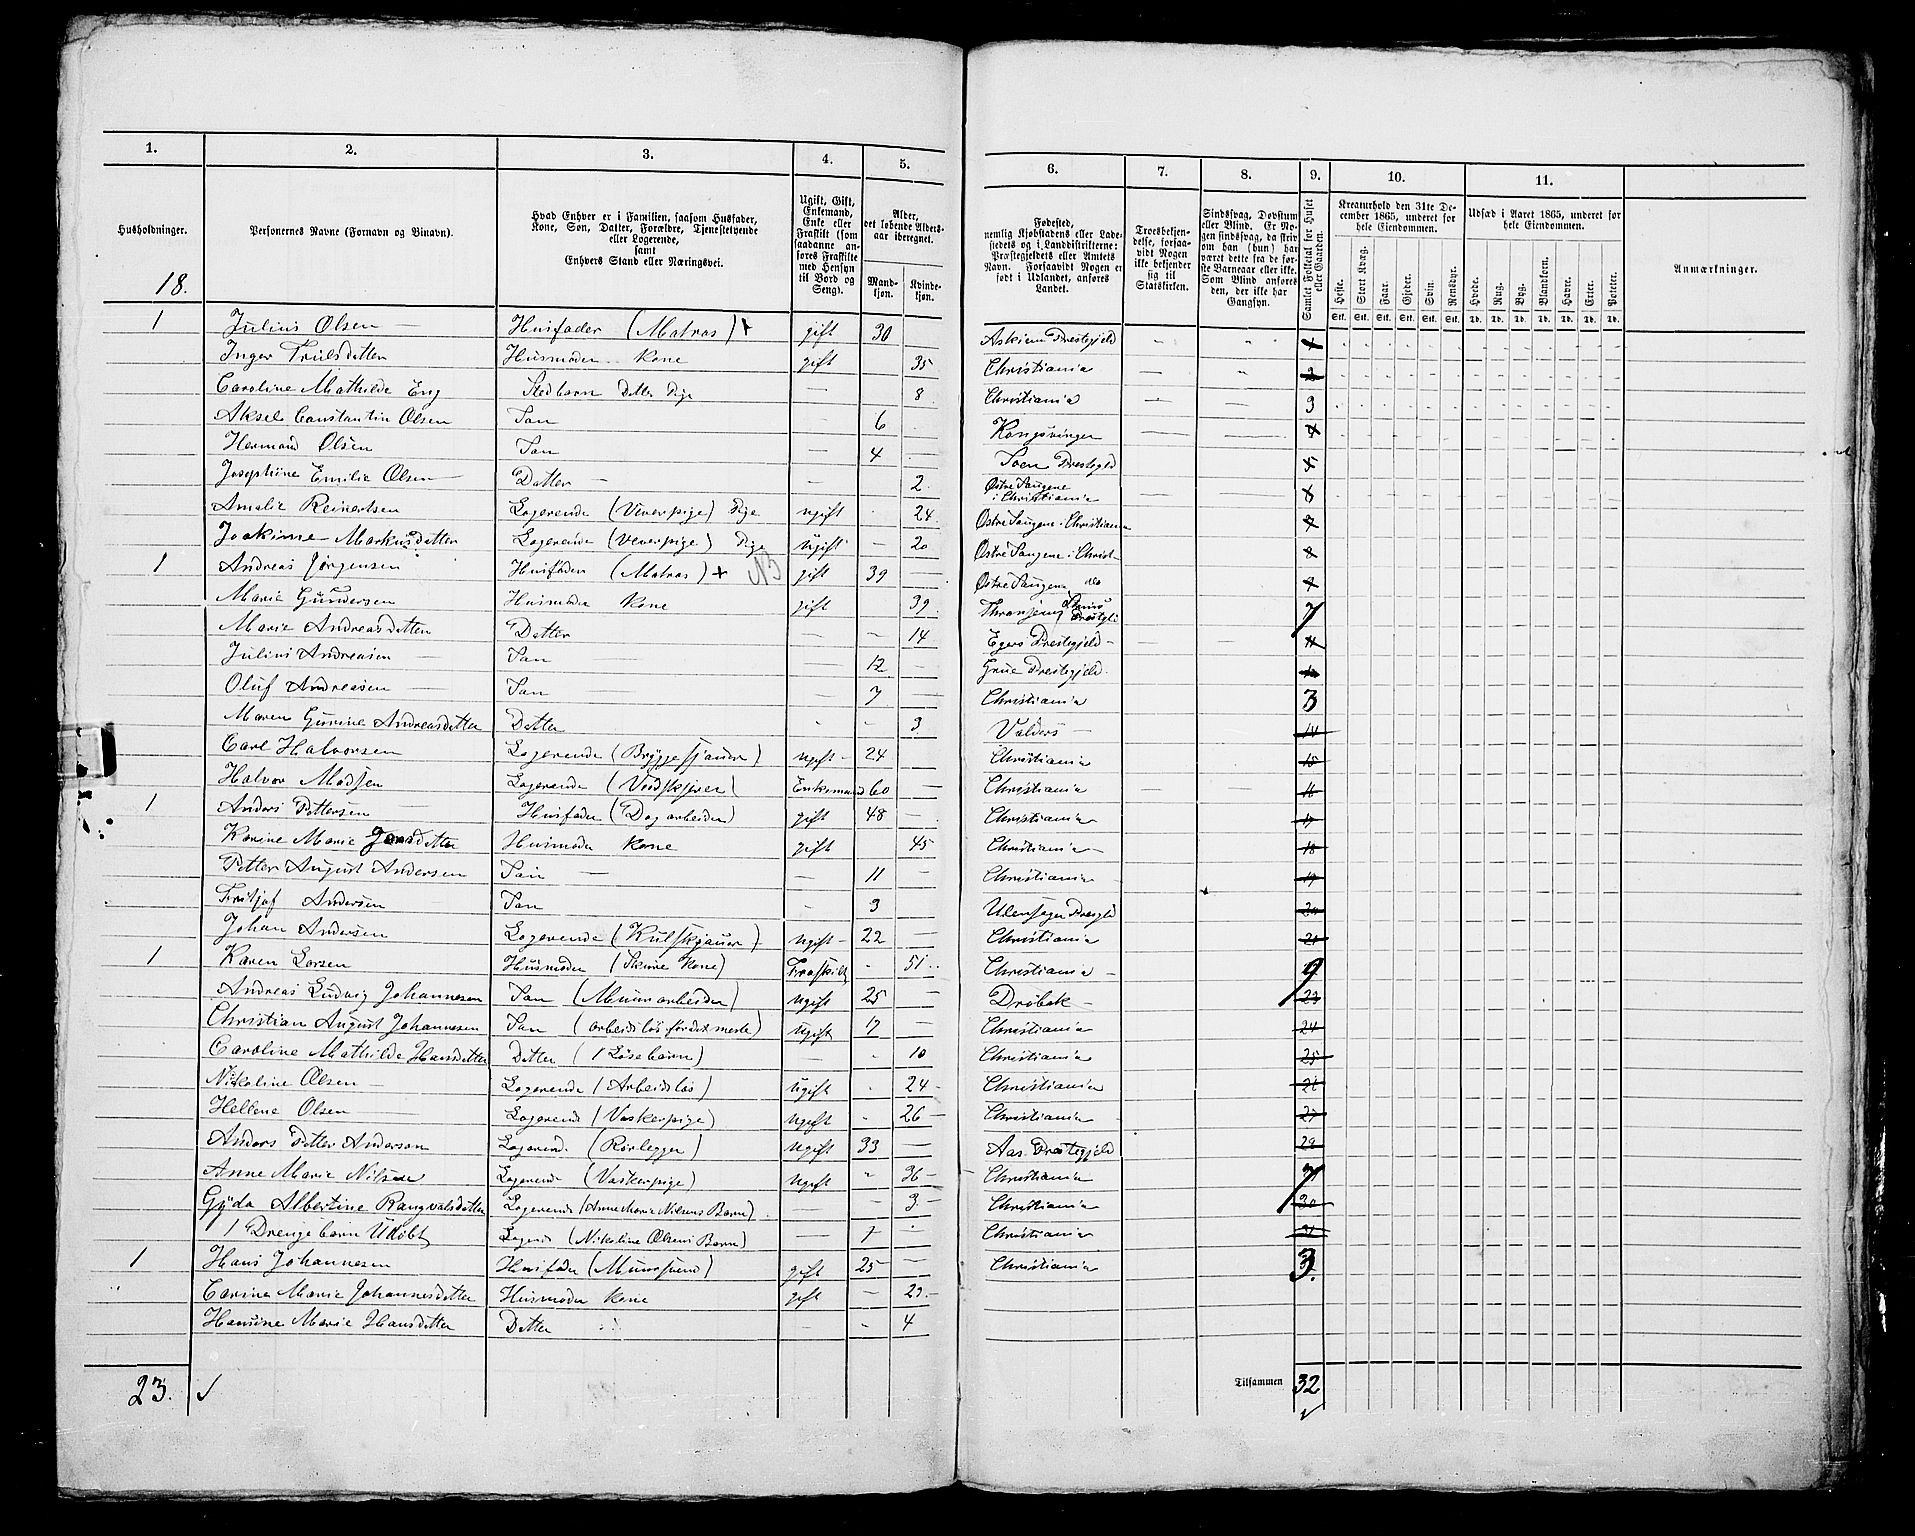 1. 2. 3. 4. 5.
Husholdninger. Personernes Navne (Fornavn og Binavn). Hvad Enhver er i Familien, saasom Husfader, Kone, Søn, Datter, Forældre, Tjenestetyende eller Logerende, samt Enhvers Stand eller Næringsvei. Ugift, Gift, Enkemand, Enke eller Fraskilt (som saadanne anføres Fraskilte med Hensyn til Bord og Seng). Alder, det løbende Aldersaar iberegnet. Mandkjøn. Kvindekjøn.
18.
1 Julius Olsen — Husfader (Matros) + gift 30
Inger Trulsdatter Husmoder kone gift 35
Caroline Mathilde Eng Stedbarn Datter Pige — 8
Aksel Constantin Olsen Søn 6
Herman Olsen Søn — 4
Josephine Emilie Olsen Datter — — 2.
Amalie Reinertsen Logerende (Veverpige) Pige ugift 24
Joakime Markusdatter Logerende (Veverpige) Pige ugift — 20
1 Andreas Jørgensen Husfader (Matros) + NB gift 39
Marie Gundersen Husmoder kone gift 39
Marie Andreasdatten Datter — — 14
Julius Andreasen Søn — 12
Oluf Andreasen — Søn — 7
Maren Gurine Andreasdatter Datter - - 3
Carl Halvorsen Logerende (Bryggesjauer) ugift 24
Halvor Madsen Logerende (Vedskjærer) Enkemand 60
1 Anders Pettersen Husfader (Dagarbeider) gift 48
Karine Marie Jensdatter Husmoder kone gift 45
Petter August Andersen Søn — — 11
Fritjof Andersen Søn - 9
Johan Andersen Logerende (Kulskjauer) ugift 22
1 Karen Larsen Husmoder (Skure kone) Fraskilt - 51
Andreas Ludvig Johannesen Søn (Muurarbeider) ugift 25
Christian August Johannesen Søn (arbeidsløs fordetmeste) ugift 17
Caroline Mathilde Hansdatter Datter (1 Løsebarn) — - 10
Nikoline Olsen Logerende (Arbeidsløs) ugift - 24
Hellene Olsen Logerend (Vaskerpige) ugift - 26
Anders Petter Anderson Logerend. (Rørlegger) ugift 33
Anne Marie Nilsen Logerende (Vaskerpige) ugift 36
Gyda Albertine Rangvalsdatter Logerende (Anne Marie Nilsens Barn) — 3
1 Drengebarn Udøbt Logend (Nikoline Olsens Barn) — 1
1 Hans Johannesen Husfader (Muursvend) gift 25
Carine Marie Johannesdatter Husmoder kone gift — 29
Hansine Marie Hansdatter Datter — 4
23. ✓
6. 7. 8. 9. 10. 11.
Fødested, nemlig Kjøbstadens eller Ladestedets og i Landdistrikterne: Præstegjeldets eller Amtets Navn. Forsaavidt Nogen er født i Udlandet, anføres Landet. Troesbekjendelse, forsaavidt Nogen ikke bekjender sig til Statskirken. Sindssvag, Døvstum eller Blind. Er Nogen sindssvag, da skriv om han (hun) har været dette fra de første Barneaar eller ikke. Som Blind anføres den, der ikke har Gangsyn. Samlet Folketal for Huset eller Gaarden. Kreaturhold den 31te December 1865, underet for hele Eiendommen. Udsæd i Aaret 1865, underet for hele Eiendommen. Anmærkninger.
Heste. Stort Kvæg. Faar. Gjeder. Svin. Rensdyr. Hvede. Rug. Byg. Blandkorn. Havre. Erter. Poteter.
Stk. Stk. Stk. Stk. Stk. Stk. Td. Td. Td. Td. Td. Td. Td.
Askiem Prestegjeld 1
Christiania 2
Christiania 3
Kongsvinger 4
Soen Prestegjeld 5
Østre Slangene i Christiania 6
Østre Slangene i Christiania 7
Østre Slangene i Christ 8
Østre Slangene do
7
Egers Prestegjeld 11
Grue Prestegjeld 12
Christiania 3
Valders — 14
Christiania 15
Christiania 16
Christiania 17
Christiania 18
Christiania 19
Ulensager Presgld 20
Christiania 21
Christiania 9
Drøbak — 23
Christiania 24
Christiania 25
Christiania 26
Christiania 27
Aas Prestegjeld 28
Christiania 7
Christiania 30
Christiania 31
Christiania 3.
Tilsammen 32
✓